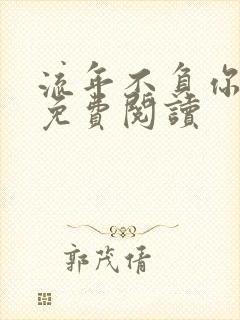 流年不負你
免費閱讀
郭茂倩